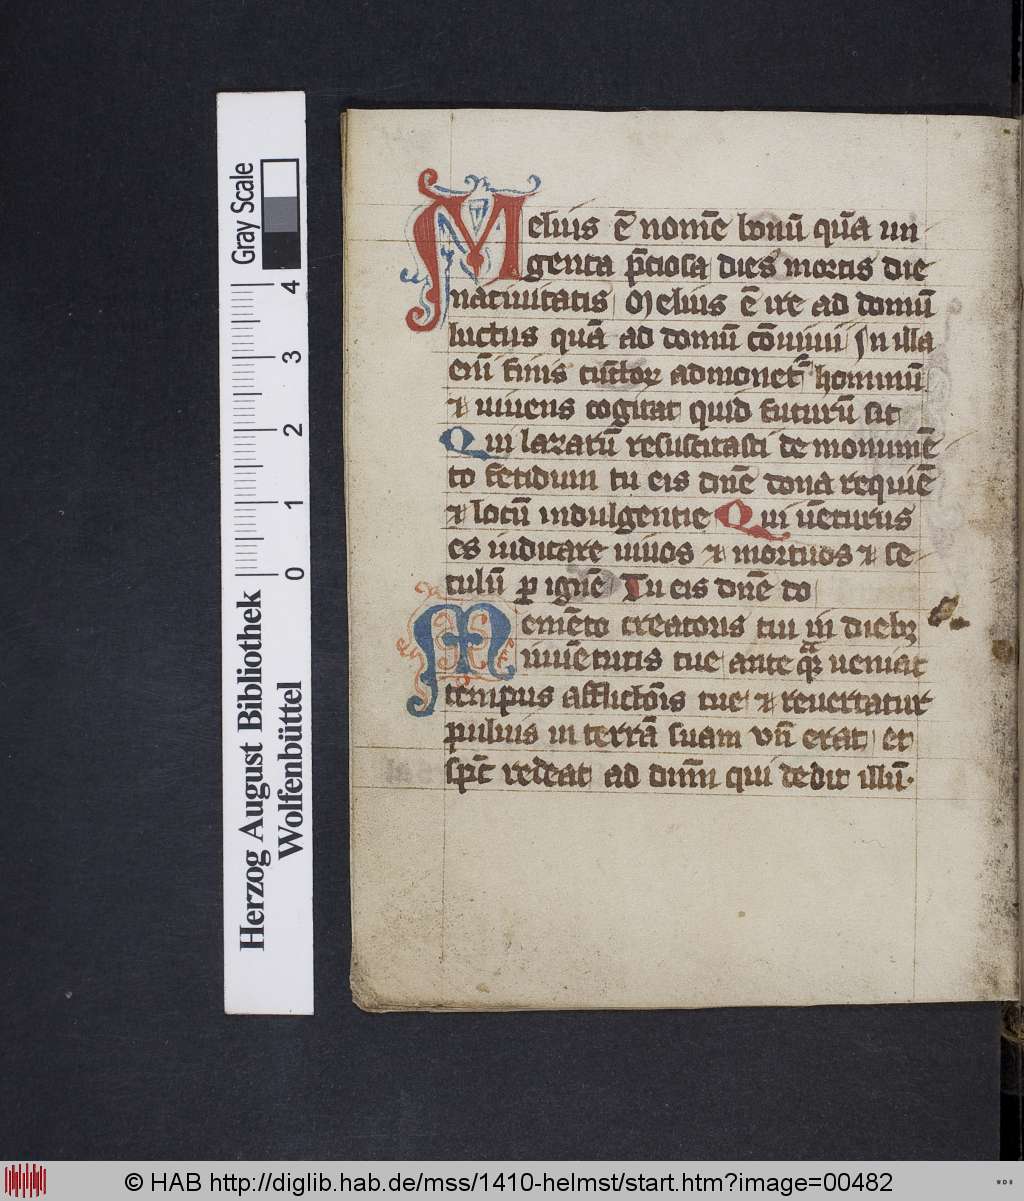 Gray Scale
4
3
2
1
0
Herzog August Bibliothek
Wolfenbüttel
Meliuſ ē nomē bonū quā un
genta p̄cioſa dies mortis die
natiuitatis Melius ē ire ad domū
luctus quā ad domū cōuiuii In illa
eni̅ finis cūctoꝝ admonet᷑ hominū
⁊ uiuens cogitat quid futurū ſit
Qui lazarū reſuſcitaſti de monumē
to fetidum tu eis dn̄e dona requiē
⁊ locū indulgentie Qui uēturus
es iudicare uiuos ⁊ mortuos ⁊ ſe
culū ꝑ ignē Tu eis dn̄e do
Memēto creatoris tui in diebꝫ
iuuētutis tue ante qͣꝫ ueniat
tempus afflictōis tue ⁊ reuertatur
puluis in terrā ſuam vn̄ erat et
ſpc̄ redeat ad dnm̄ qui dedit illū.
© HAB http://diglib.hab.de/mss/1410-helmst/start.htm?image=00482